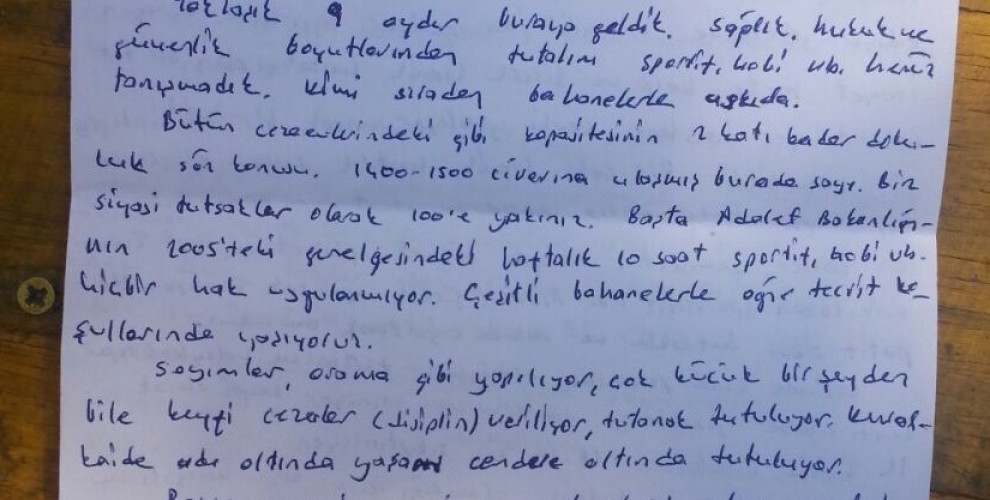 9 aydır buraya geldik. sağlık, hukuk ve
güvenlik boyutlarından tutalım sportif, hobi vb. henüz
tanışmadık. Kimi sıradan bahanelerle askıda.
Bütün cezaevlerindeki gibi kapasitesinin 2 katı kadar dolu-
luk söz konusu. 1400-1500 civarına ulaşmış burada sayı. Biz
siyasi tutsaklar olarak 100'e yakınız. Başta Adalet Bakanlığı-
nın 2005'teki genelgesindeki haftalık 10 saat sportif, hobi vb.
hiçbir hak uygulanmıyor. Çeşitli bahanelerle ağır tecrit ko-
şullarında yaşıyoruz.
Sayımlar, arama gibi yapılıyor, çok küçük bir şeyden
bile keyfi cezalar (disiplin) veriliyor, tutanak tutuluyor. Kural-
kaide adı altında yaşam cendere altında tutuluyor.